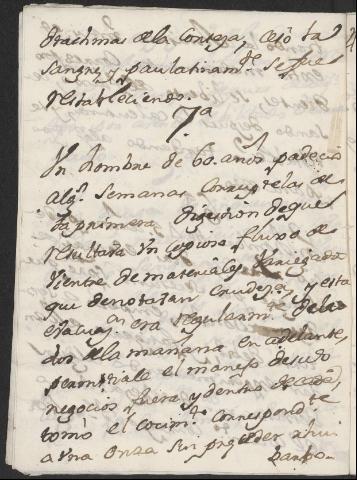 drachmas de la Corteza, cesò la
sangre, y paulatinamte. se fue
restableciendo.
7a.
Un hombre de 60. años, padeciò
algs. semanas corruptelas de
la primera digestion de que
resultava Un copioso fluxo de
vientre de materiales variegados
que denotavan crudeza, y esta
era regularmte. de las
dos de la mañana en adelante,
permitiale el manejo de sudo
negocios y dentro de
tomò el cocimto. correspondte.
a Una Onza sin preceder